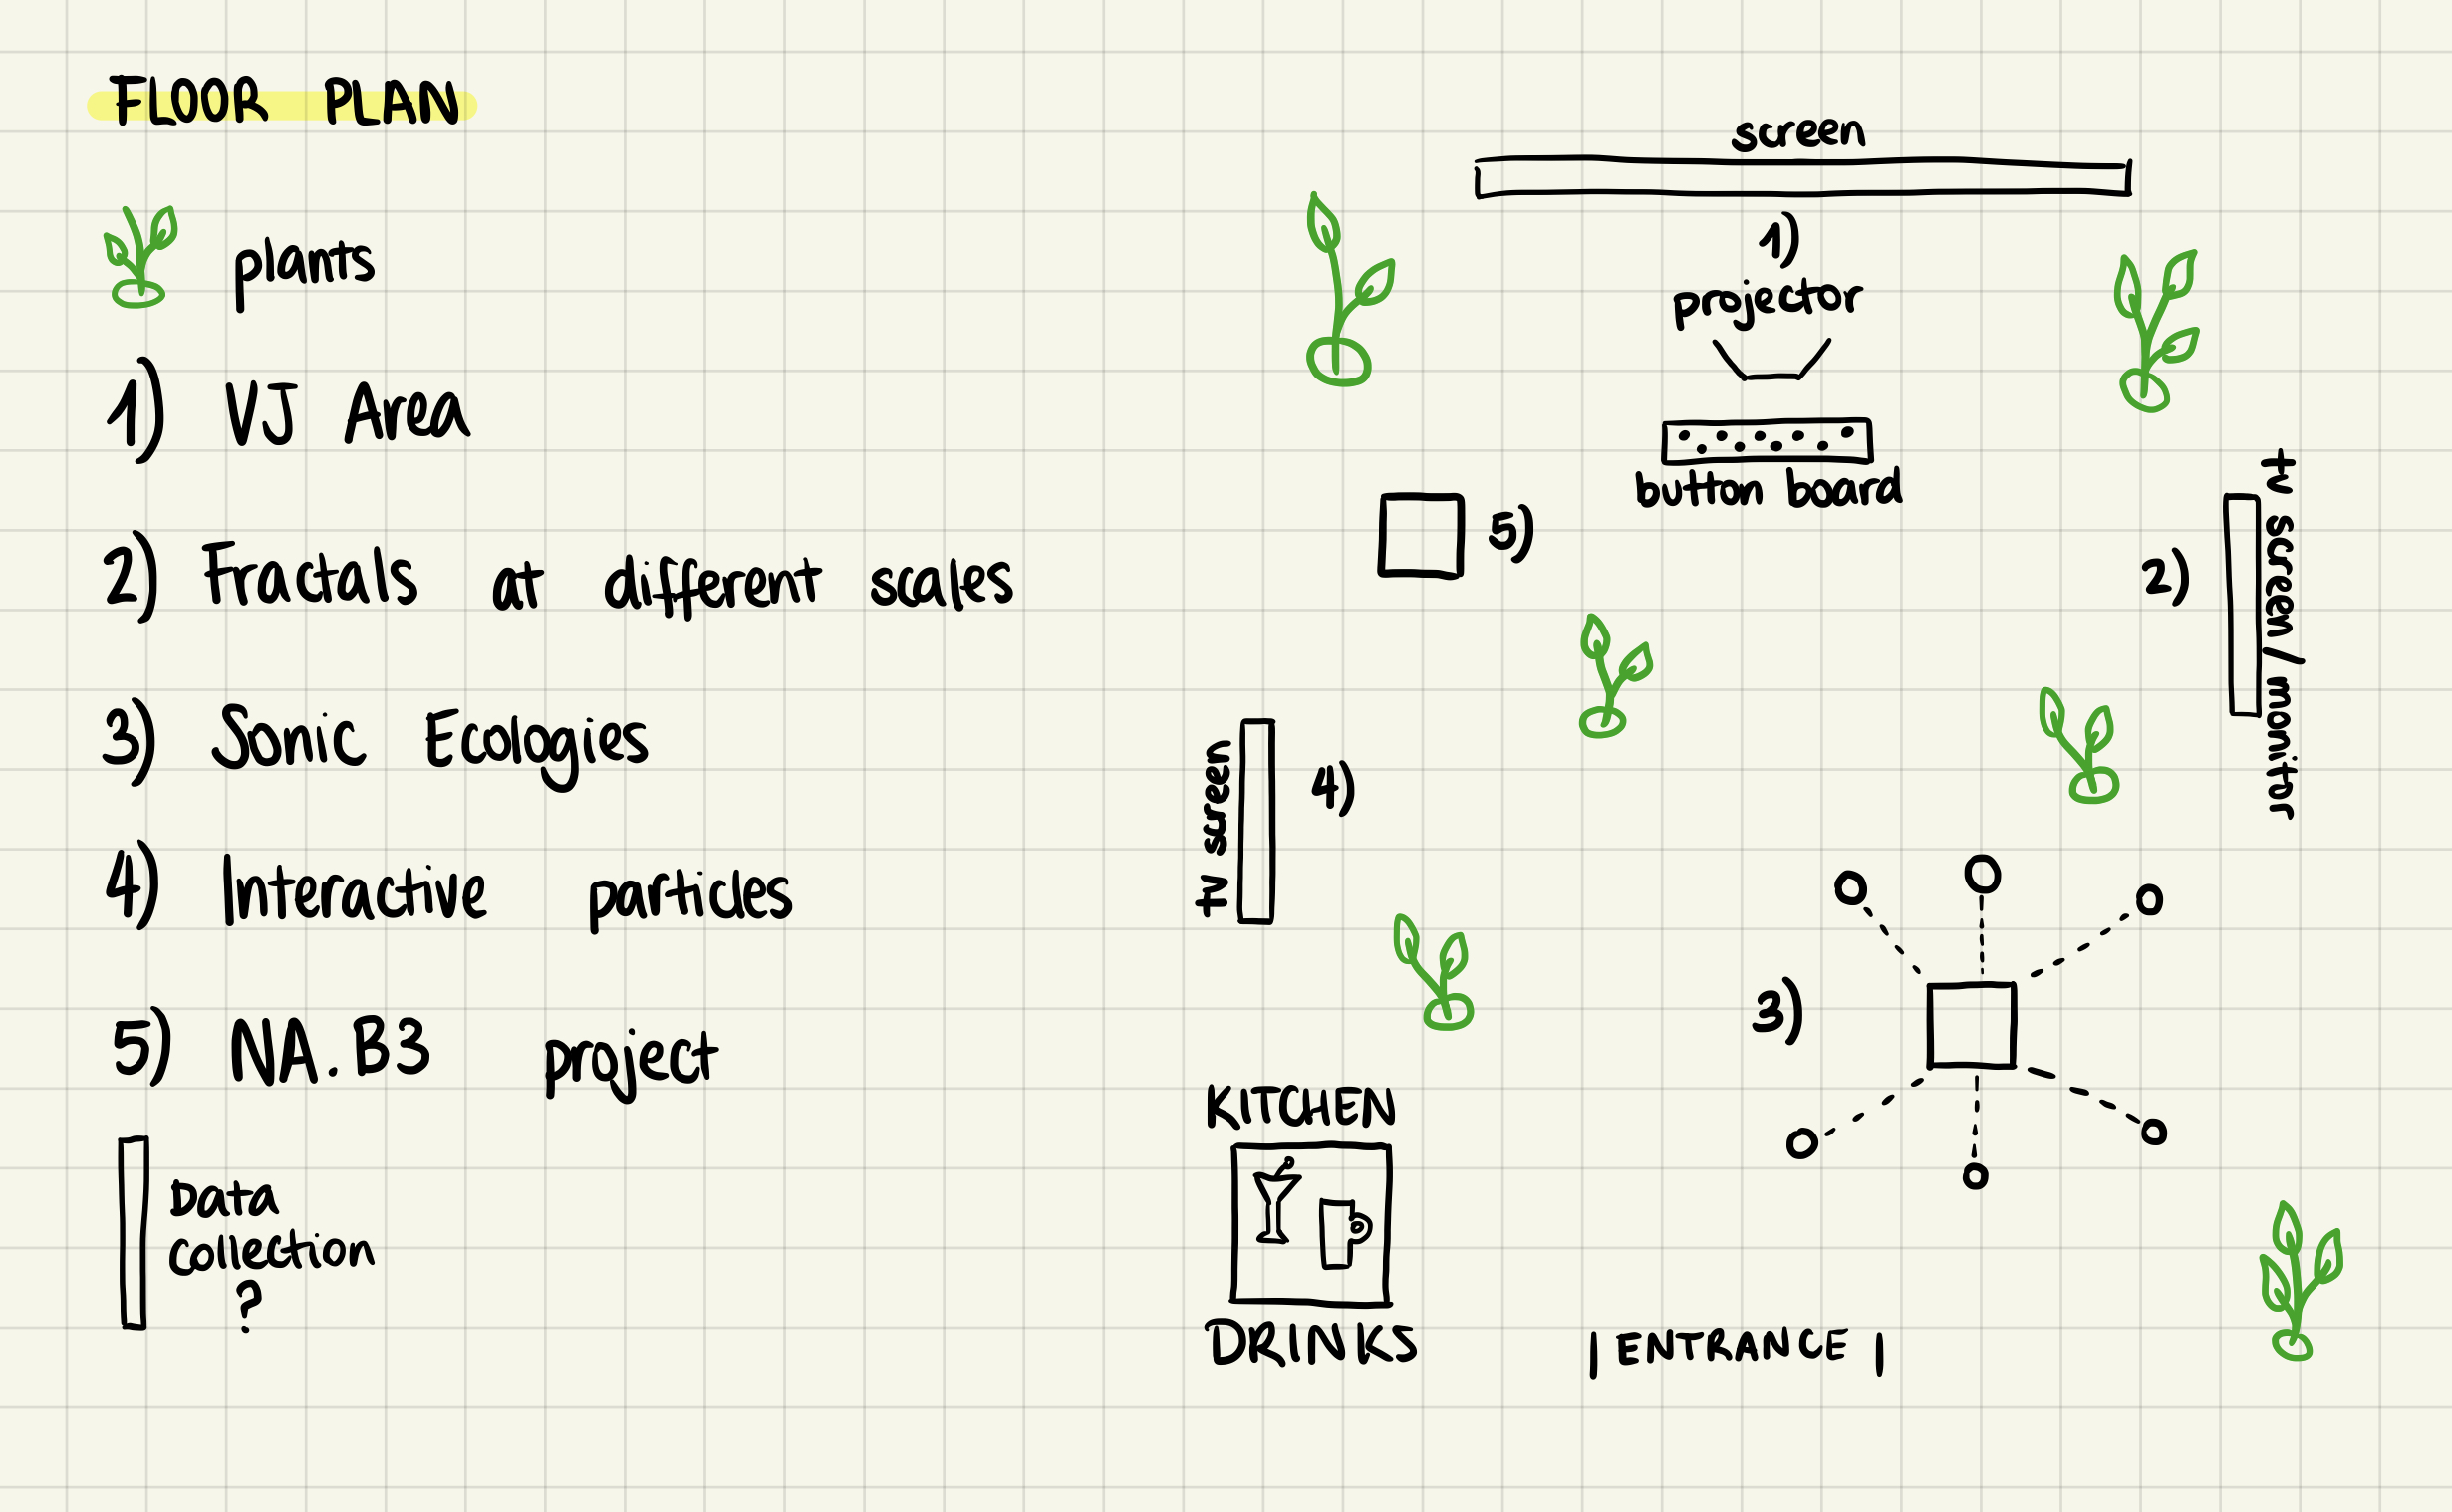 FLOOR PLAN
plants
1) VJ Area
2) Fractals at different scales
3) Sonic Ecologies
4) Interactive particles
5) NA.B3 project
Data
collection
?
screen
1)
projector
button board
5)
2)
tv screen / monitor
tv screen
4)
3)
KITCHEN
DRINKS
| ENTRANCE |